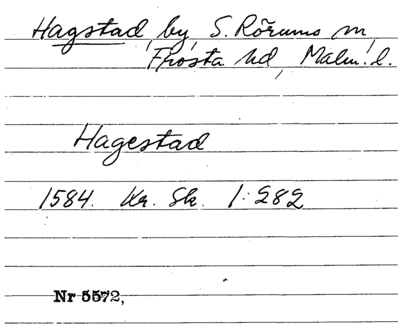 Hagstad, by, S. Rörums sn,
Frosta hd, Malm. l.
Hagestad
1584. Kr. Sk. 1:282
Nr 5572,